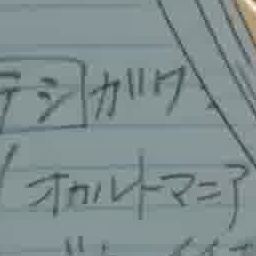 テシガワ
オカルトマニア